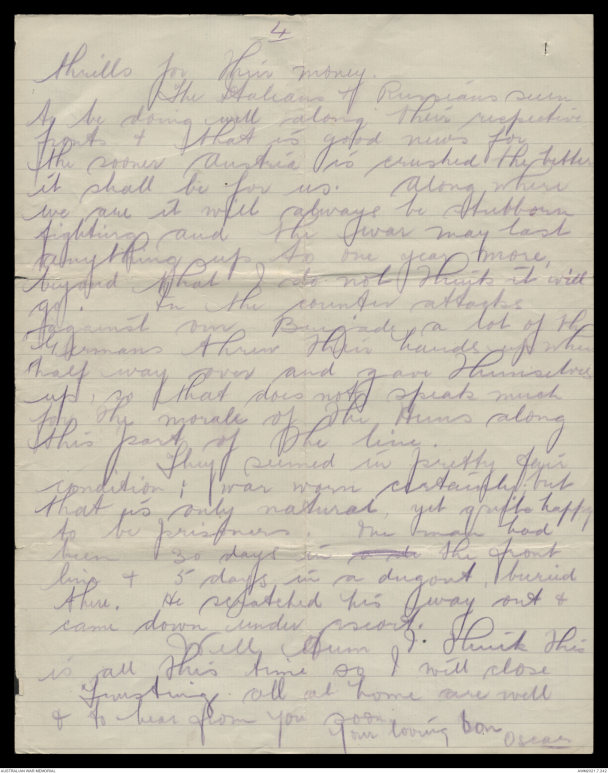 4
thrills for their money.
The Italians & Russians seem
to be doing well along their respective
fronts & that is good news for
the sooner Austria is crushed the better
it shall be for us. Along where
we are it will always be stubborn
fighting and the war may last
anything up to one year more,
beyond that I do not think it will
go. In the counter attacks
against our Brigade, a lot of the
Germans threw their hands up when
half way over and gave themselves
up, so that does not speak much
for the morale of the Huns along
this part of the line.
They seemed in pretty fair
condition; war worn certainly but
that is only natural, yet quite happy
to be prisoners. One man had
been 30 days in the front
line & 5 days in a dugout, buried
there. He scratched his way out &
came down under escort.
Well Mum I think this
is all this time so I will close
Trusting all at home are well
& to hear from you soon
Your loving son
Oscar
AUSTRALIAN WAR MEMORIAL
AWM2021.7.247